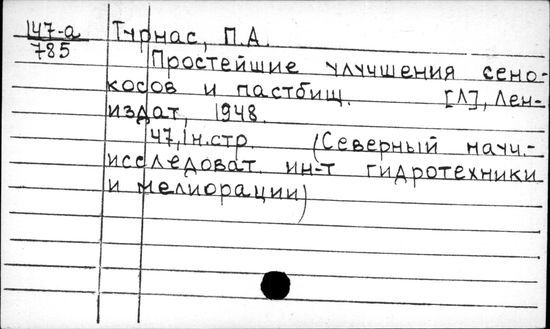 147-а Турнас, П.А.
785
Простейшие улучшения сено-
косов и пастбищ. [Л], Лен-
издат, 1948.
47, 1н.стр. (Северный научн.-
исследоват. ин-т гидротехники
и мелиорации)